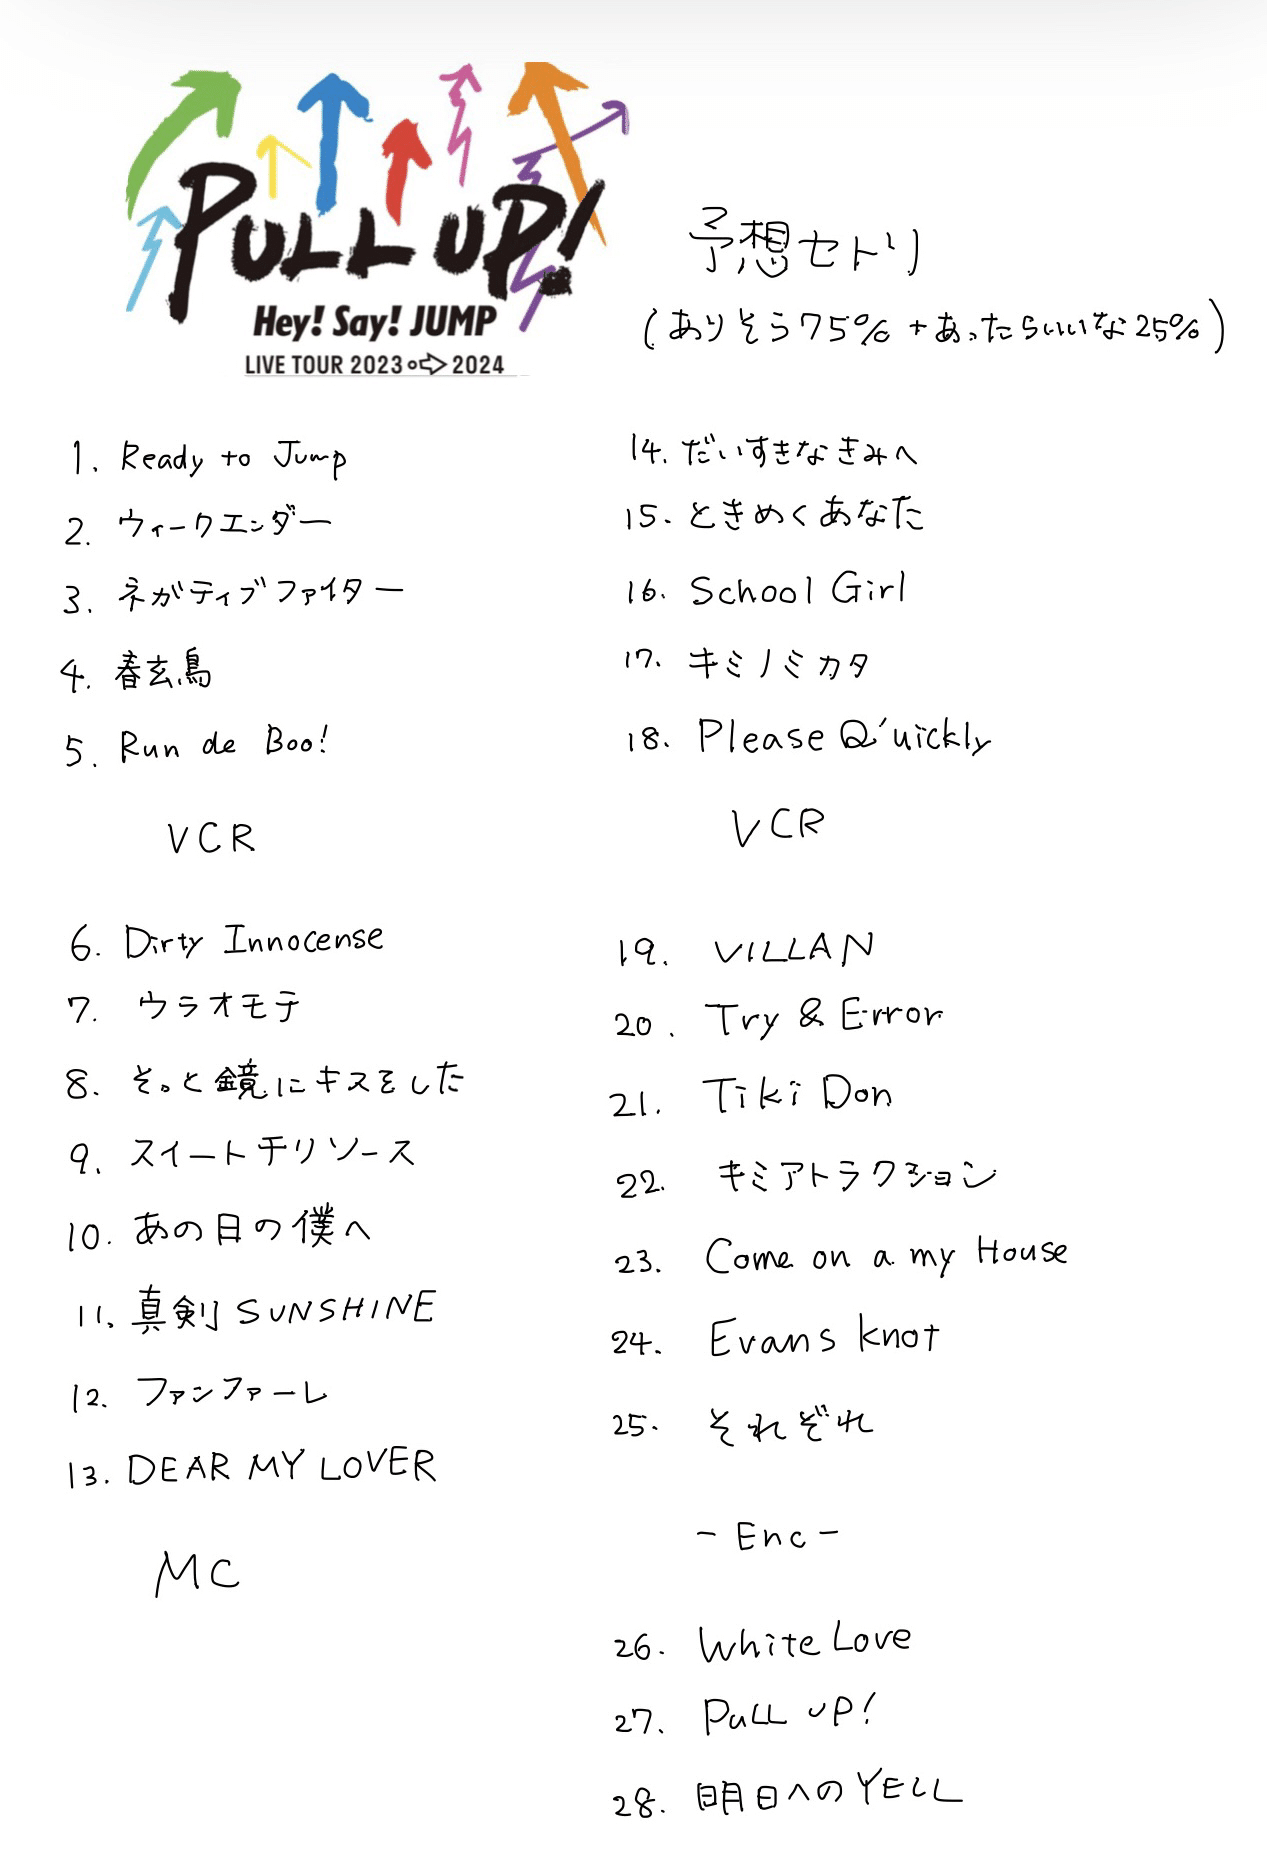 PULL UP!
Hey! Say! JUMP
LIVE TOUR 2023 2024
予想セトリ
(ありそう75% + あったらいいな25%)
1. Ready to Jump
2. ウィークエンダー
3. ネガティブファイター
4. 春玄鳥
5. Run de Boo!
VCR
6. Dirty Innocense
7. ウラオモテ
8. そっと鏡にキスをした
9. スイートチリソース
10. あの日の僕へ
11. 真剣SUNSHINE
12. ファンファーレ
13. DEAR MY LOVER
MC
14. だいすきなきみへ
15. ときめくあなた
16. School Girl
17. キミノミカタ
18. Please Q'uickly
VCR
19. VILLAN
20. Try & Error
21. Tiki Don
22. キミアトラクション
23. Come on a my House
24. Evans knot
25. それぞれ
- Enc -
26. White Love
27. PuLL UP!
28. 明日へのYELL